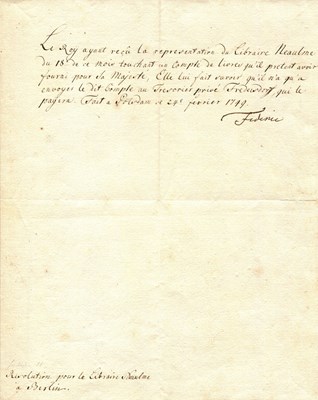 Le Roy ayant reçu la representation du Libraire Neaulme
du 18 de ce mois touchant un Compte de livres qu'il pretest avoir
fourni pour Sa Majesté, Elle lui fait savoir qu'il n'a qu'a
envoyer le dit Compte au Tresorier privé Fredersdorf, qui le
payera. Fait a Potsdam ce 24e fevrier 1749.
Federic
Resolution pour le Libraire Néaulme
a Berlin.